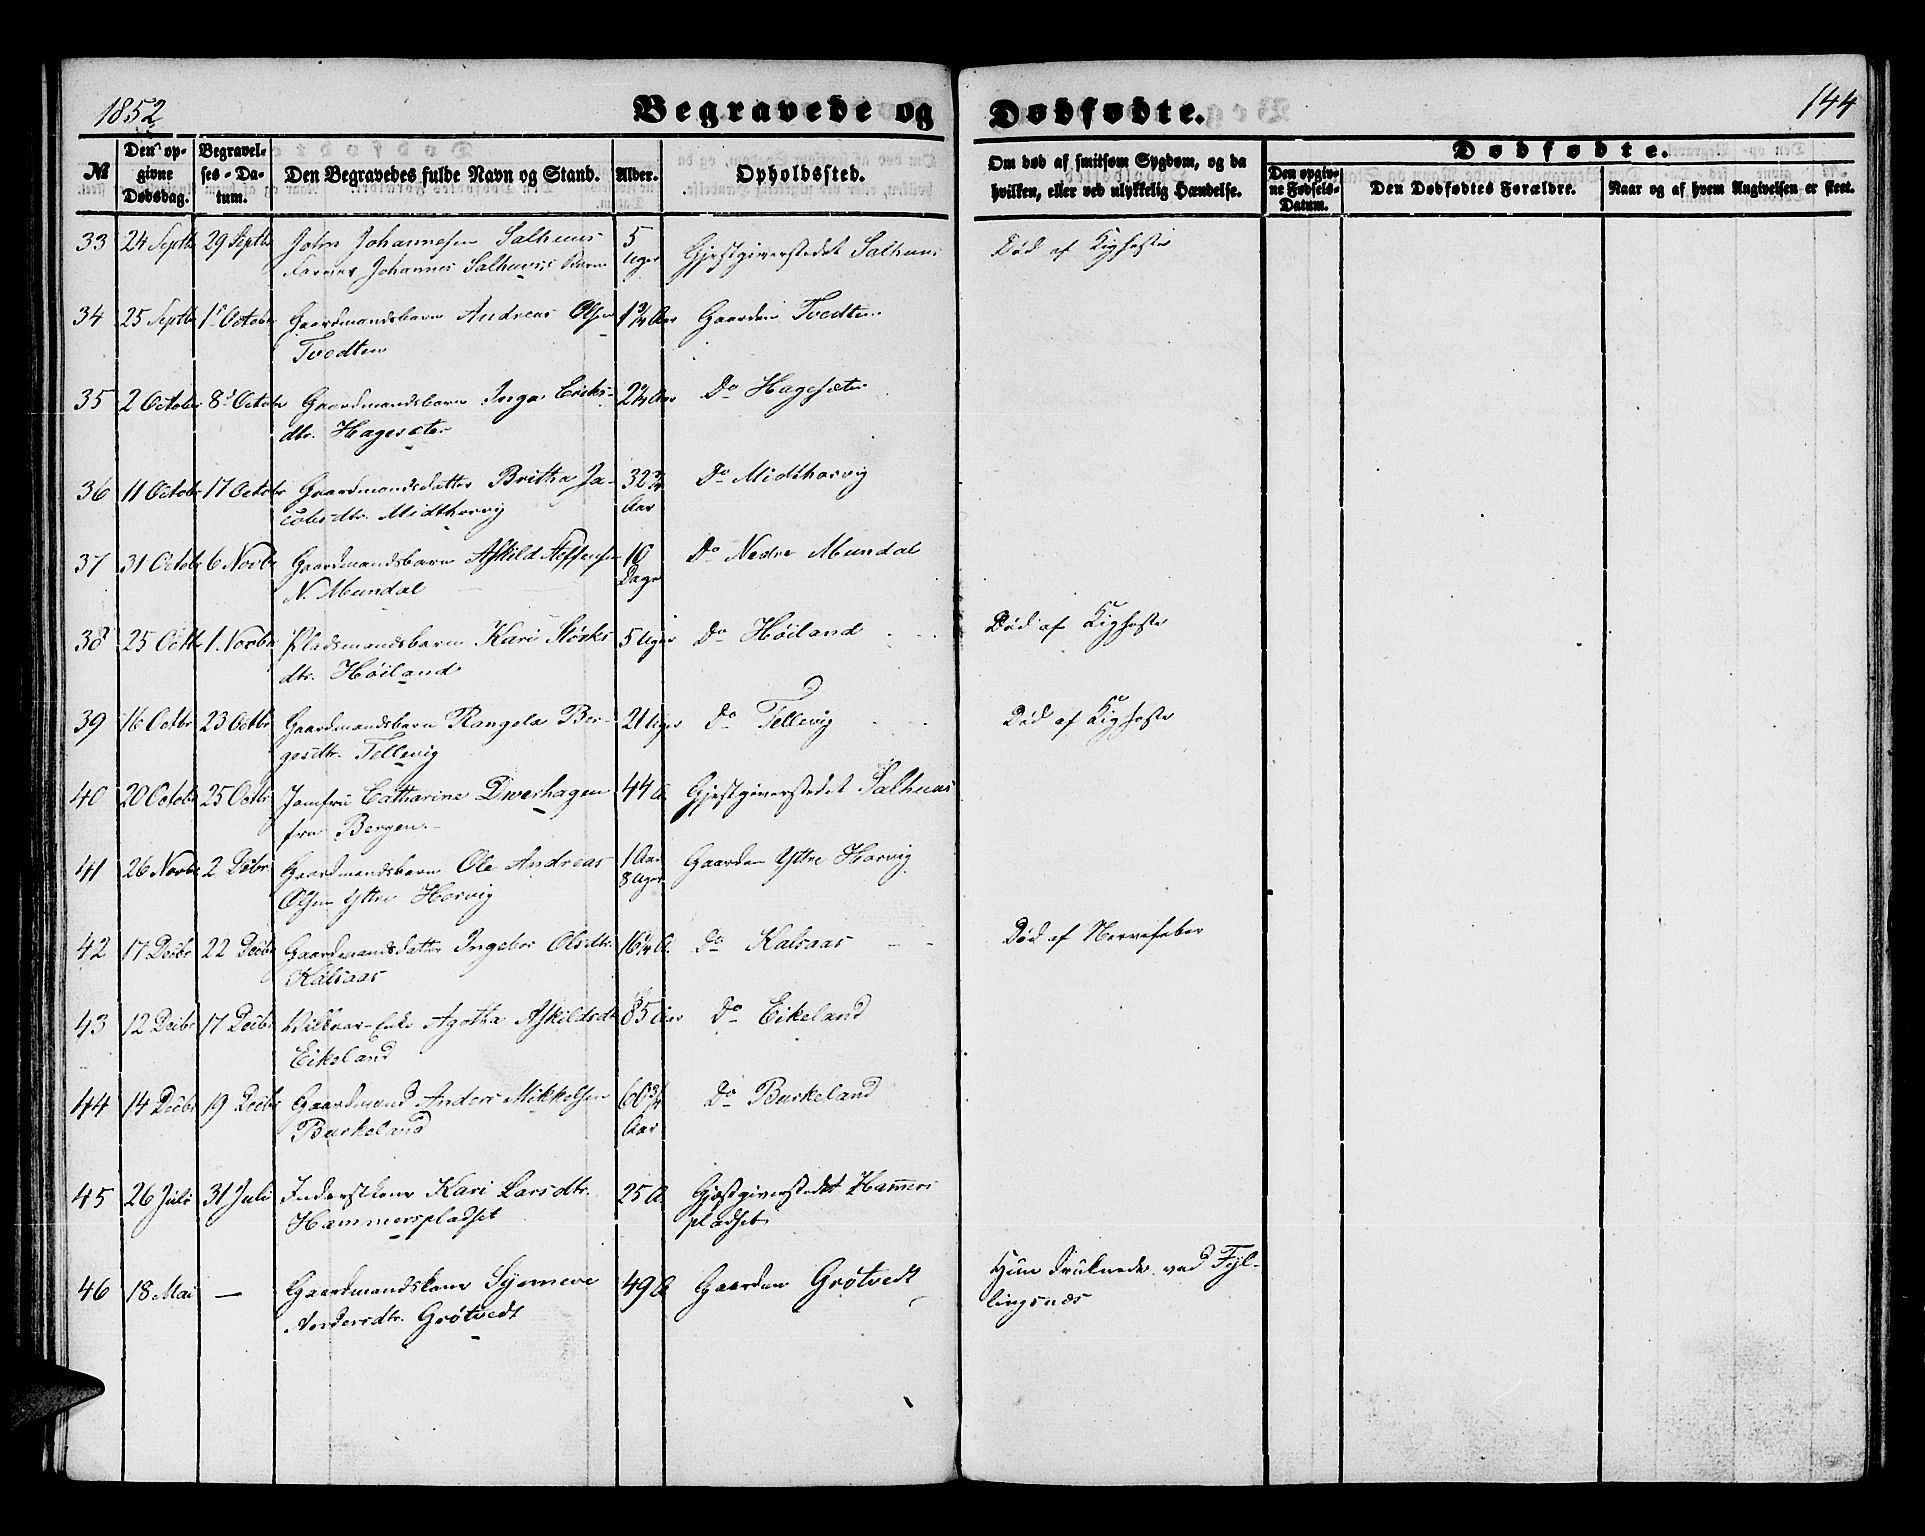 1852 Begravede og Dødfødte. 144
№ Den opgivne Dødsdag. Begravelses-Datum. Den Begravedes fulde Navn og Stand. Alder. Opholdssted. Om død af smitsom Sygdom, og da hvilken, eller ved ulykkelig Hændelse. Dødfødte. Den opgivne Fødsels-Datum. Den Dødfødtes Forældre. Naar og af hvem Angivelsen er skeet.
33 24 Septb 29 Septb John Johannesen Salhuus 5 Uger Gjestgiverstedet Salhuus Død af Kighoste
Johannes Salhuus's Barn
34 25 Septb 1 Octobr Gaardmandsbarn Andreas Olsen 1 3/4 Aar Gaarden Tvedten
Tvedten
35 2 Octobr 8 Octobr Gaardmandsbarn Inga Eriks- Aar Do Hagesæter
dtr. Hagesæter
36 11 Octobr 17 Octobr Gaardmandsdatter Britha Ja- 32 3/4 Aar Do Midthorvig
cobsdtr. Midthorvig
37 31 Octobr 6 Novbr Gaardmandsbarn Askild Steffensen 10 Dage Do Nedre Mundal
N. Mundal
38 25 Octb 1 Novbr Pladsmandsbarn Kari Størks 5 Uger Do Høiland Død af Kighoste
dtr. Høiland
39 16 Octbr 23 Octbr Gaardmandsbarn Rangela Ber- 21 Uger Do Tellevig Død af Kighoste
gesdtr. Tellevig
40 20 Octobr 25 Octbr Jomfru Catharine Dwerhagen 44 A. Gjestgiverstedet Salhuus
fra Bergen.
41 26 Novbr 2 Decbr Gaardmandsbarn Ole Andreas 1 Aar 8 Uger Gaarden Yttre Horvig
Olsen Yttre Horvig
42 17 Decbr 22 Decbr Gaardmandsdatter Ingebor Olsdtr. 16 1/4 A. Do Kalsaas Død af Nervefeber
Kalsaas
43 12 Decbr 17 Decbr Vilkaar-Enke Agatha Askildsdt 85 Aar Do Eikeland
Eikeland
44 14 Decbr 19 Decbr Gaardmand Anders Mikkelsen 60 3/4 Aar Do Burkeland
Burkeland
45 26 Juli 31 Juli Inderstkone Kari Larsdtr. 25 A. Gjestgiverstedet Hamers
Hammerspladset pladset
46 18 Mai — Gaardmandskone Synneve 49 A Gaarden Grøtvedt Hun druknede ved Fyl-
Andersdtr. Grøtvedt lingsnæs